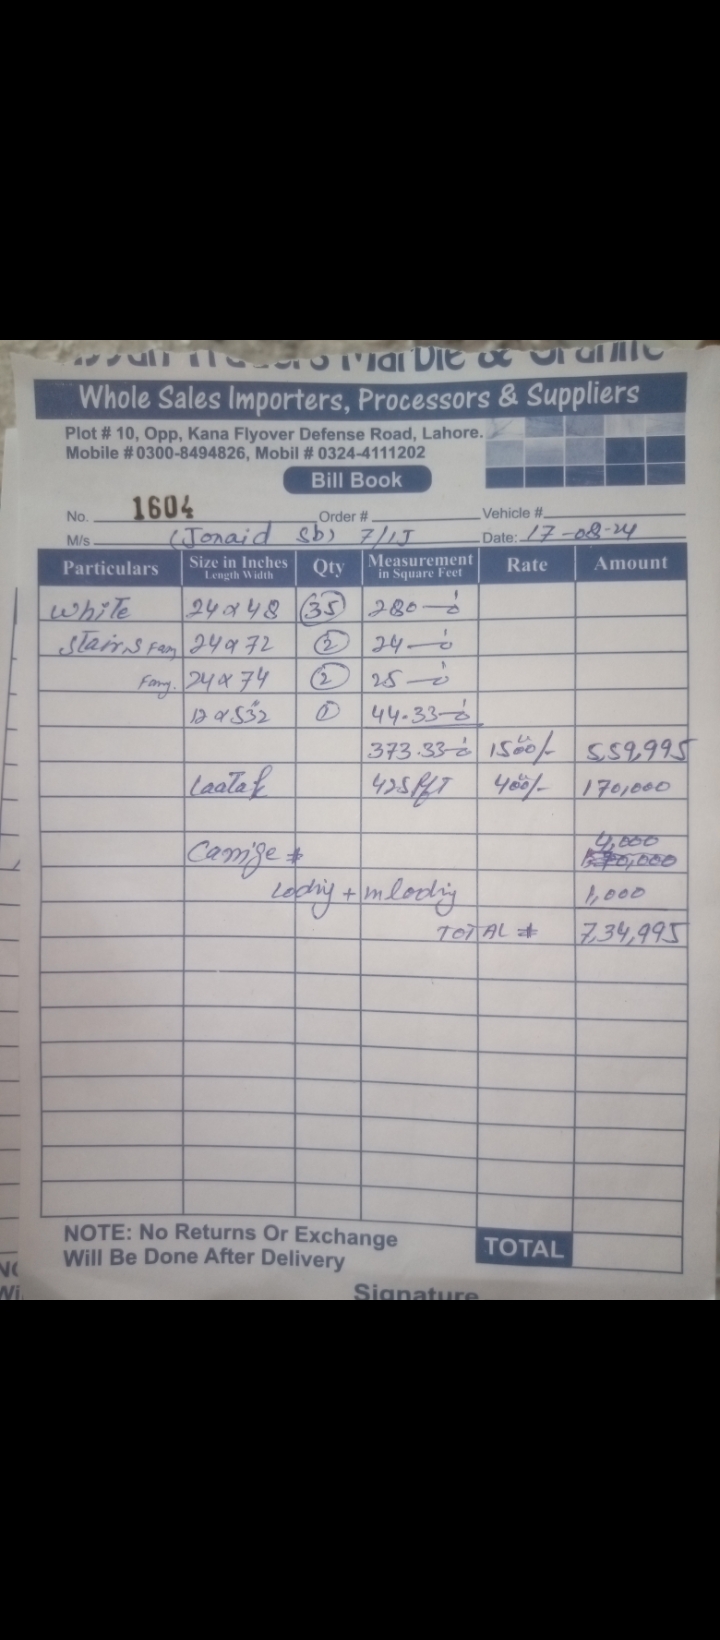 Marble & Granite
Whole Sales Importers, Processors & Suppliers
Plot # 10, Opp, Kana Flyover Defense Road, Lahore.
Mobile # 0300-8494826, Mobil # 0324-4111202
Bill Book
No. 1604 Order # Vehicle #
M/s (Jonaid Sb) 7/1J Date: 17-08-24
Particulars Size in Inches Length Width Qty Measurement in Square Feet Rate Amount
White 24x48 35 280
Stairs 24x72 2 24
24x74 2 25
12x532 1 44.33
373.33 1500/- 5,59,995
Laatak 425 RfT 400/- 170,000
4,000
Carrige
Lodig + mlodig 1,000
TOTAL 7,34,995
NOTE: No Returns Or Exchange
Will Be Done After Delivery
TOTAL
Signature